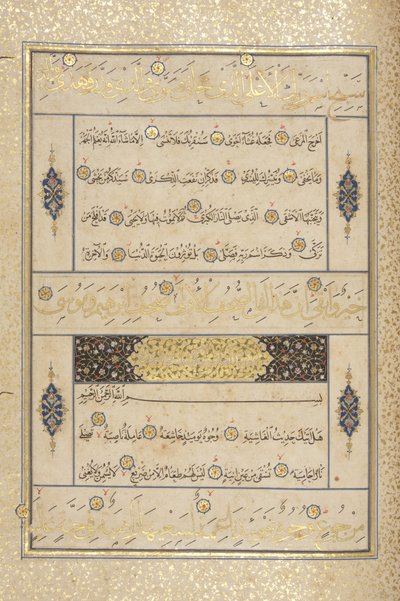 سبح اسم ربك الأعلى الذي خلق فسوى والذي قدر فهدى والذي
أخرج المرعى فجعله غثاء أحوى سنقرئك فلا تنسى إلا ما شاء الله إنه يعلم الجهر
وما يخفى ونيسرك لليسرى فذكر إن نفعت الذكرى سيذكر من يخشى
ويتجنبها الأشقى الذي يصلى النار الكبرى ثم لا يموت فيها ولا يحيى قد أفلح من
تزكى وذكر اسم ربه فصلى بل تؤثرون الحيوة الدنيا والآخرة
خير وأبقى إن هذا لفي الصحف الأولى صحف إبرهيم وموسى
بسم الله الرحمن الرحيم
هل أتيك حديث الغاشية وجوه يومئذ خاشعة عاملة ناصبة تصلى
نارا حامية تسقى من عين آنية ليس لهم طعام إلا من ضريع لا يسمن ولا يغني
من جوع وجوه يومئذ ناعمة لسعيها راضية في جنة